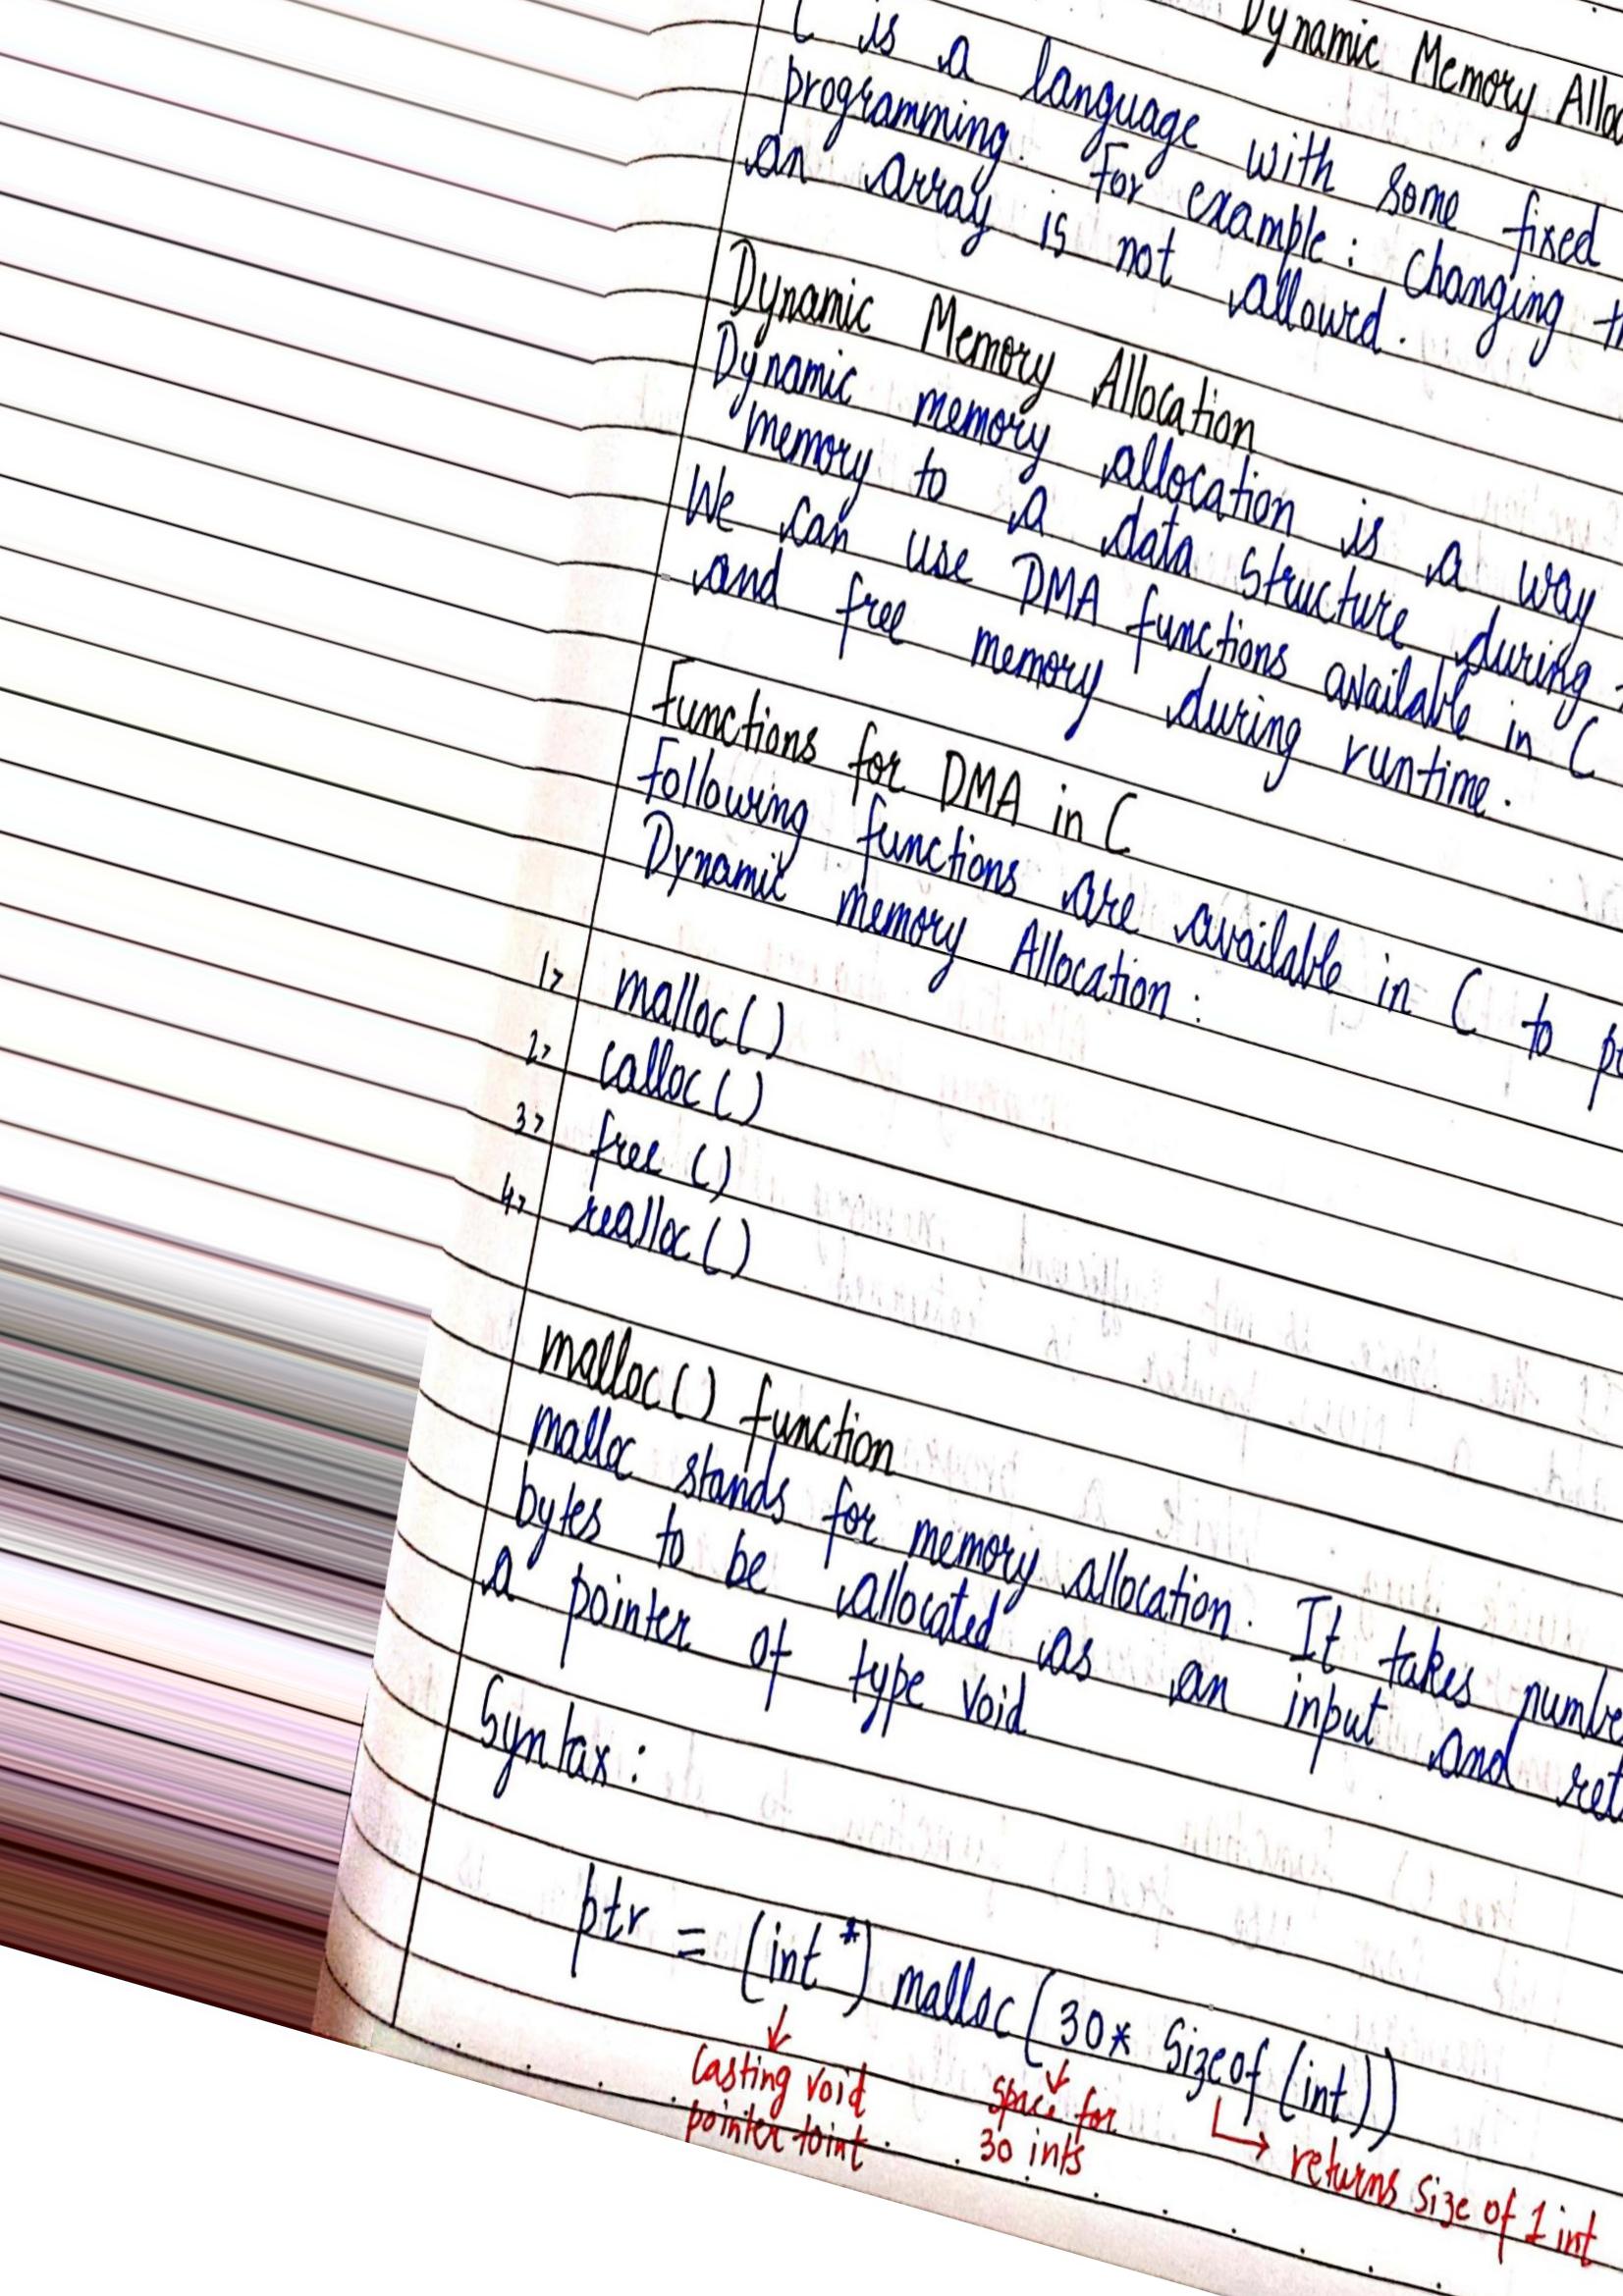 Dynamic Memory
C is a language with some fixed
programming. For example: Changing
an array is not allowed.
Dynamic Memory Allocation
Dynamic memory allocation is a way
memory to a data structure during
We can use DMA functions available in C
and free memory during runtime.
Functions for DMA in C
Following functions are available in C to
Dynamic memory Allocation:
1> malloc()
2> calloc()
3> free ()
4> realloc()
malloc() function
malloc stands for memory allocation. It takes
bytes to be allocated as an input and
a pointer of type void
Syntax:
ptr = (int*) malloc(30* Sizeof (int))
Casting void
pointer to int.
Space for
30 ints
returns Size of 1 int